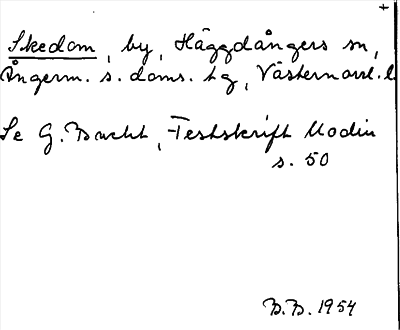 +
Skedom, by, Häggdångers sn,
Ångerm. s. doms. tg, Västernorrl. l.
Se G. Bucht, Festskrift Modin
s. 50
B.B. 1954